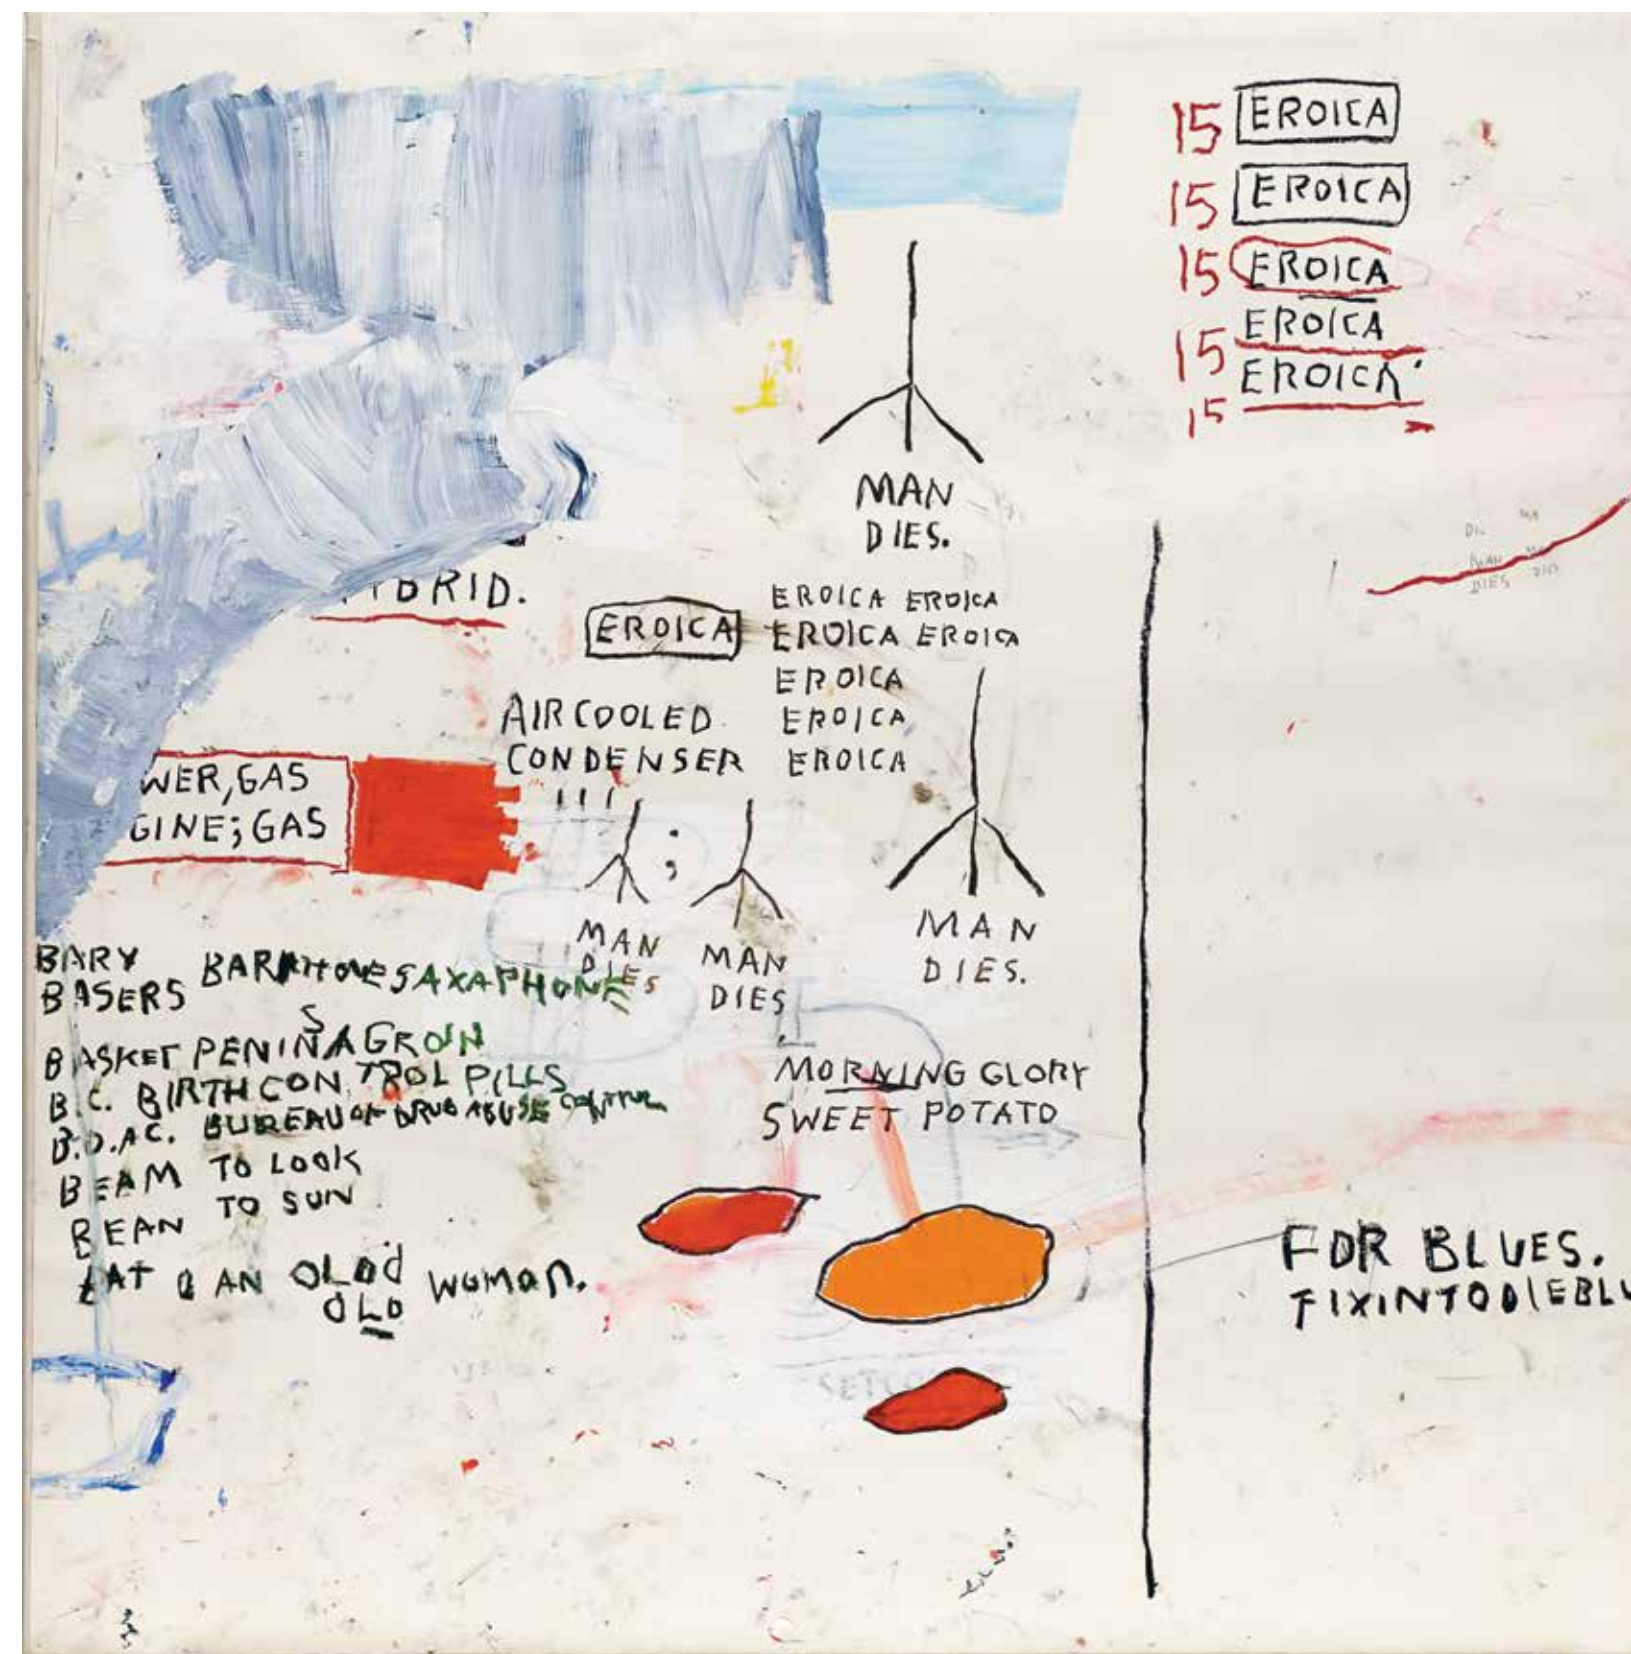 15 EROICA
15 EROICA
15 EROICA
15 EROICA
15 EROICA
MAN
DIES.
BRID.
EROICA
EROICA EROICA
EROICA EROICA
EROICA
EROICA
EROICA
AIRCOOLED
CONDENSER
WER, GAS
GINE; GAS
MAN
DIES
;
MAN
DIES
MAN
DIES.
MAN
DIES
BARY
BASERS
SAXAPHONE
S
BASKET PENIN AGROIN
B.C. BIRTHCONTROL PILLS
B.D.AC. BUREAU OF DRUG ABUSE CONTROL
BEAM TO LOOK
BEAN TO SUN
EAT AN OLD WOMAN.
OLD
MORNING GLORY
SWEET POTATO
FOR BLUES.
FIXINTODIEBLU